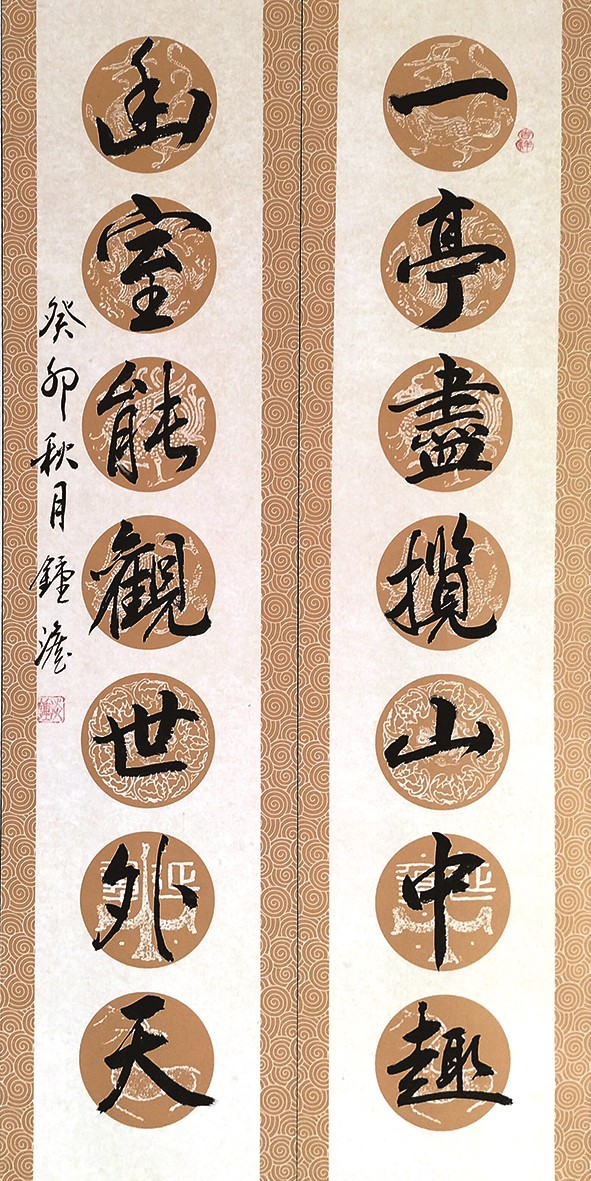 一亭盡攬山中趣
幽室能觀世外天
癸卯秋月鍾澹